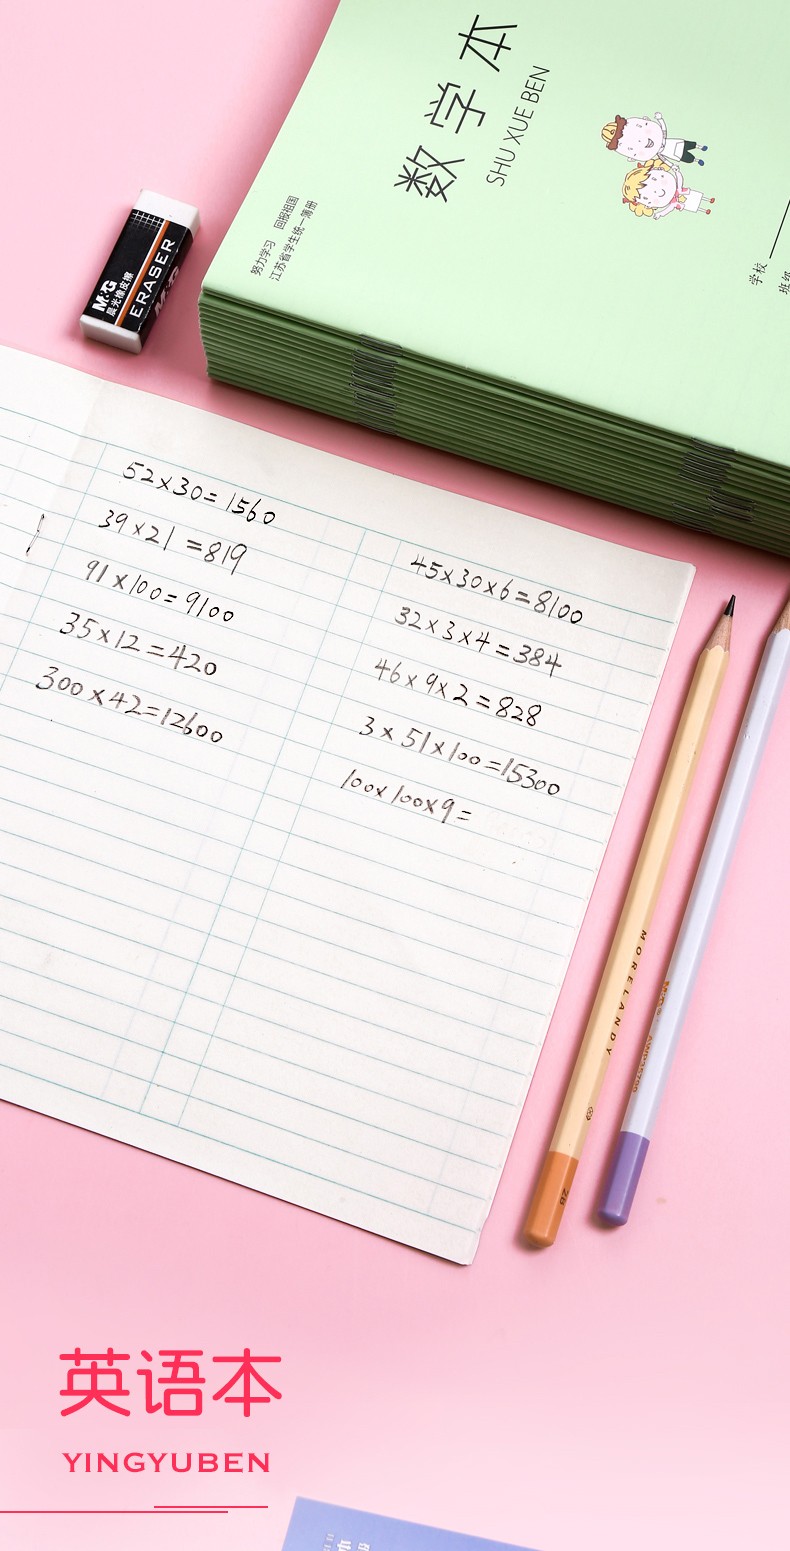 数学本
SHU XUE BEN
努力学习 回报祖国
江苏省学生统一簿册
学校
班级
M&G
晨光橡皮擦
ERASER
M&G
52×30=1560
39×21=819
91×100=9100
35×12=420
300×42=12600
45×30×6=8100
32×3×4=384
46×9×2=828
3×51×100=15300
100×100×9=
MORELANDY
2B
英语本
YINGYUBEN